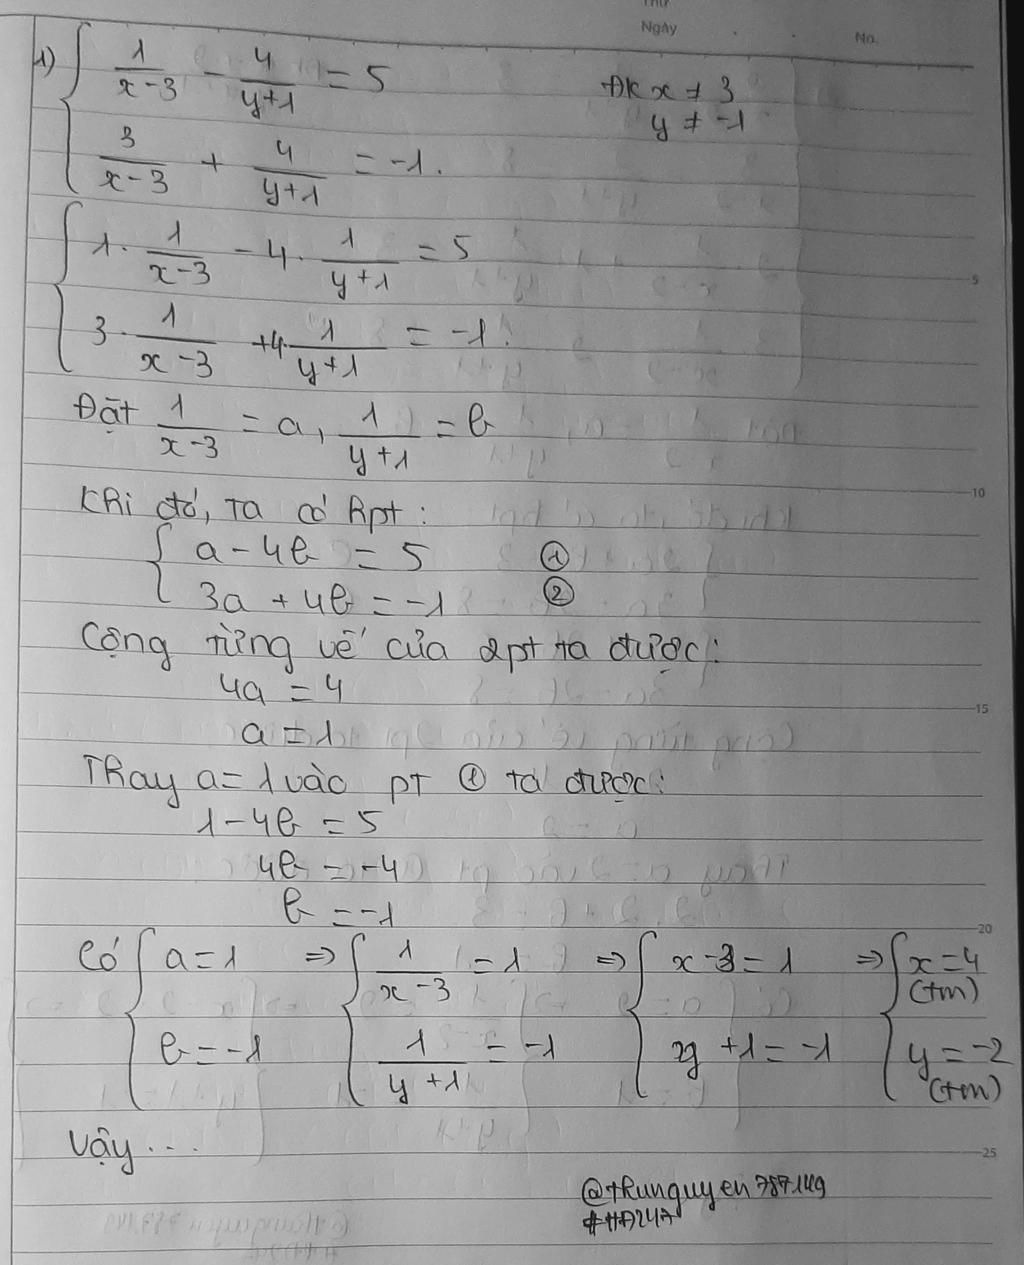 Thứ
Ngày
No.
1) { 1/(x-3) - 4/(y+1) = 5   ĐK x ≠ 3
y ≠ -1
3/(x-3) + 4/(y+1) = -1.
{ 1. 1/(x-3) - 4. 1/(y+1) = 5
3. 1/(x-3) +4. 1/(y+1) = -1.
5
Đặt 1/(x-3) = a, 1/(y+1) = b
Khi đó, ta có hpt:
10
{ a - 4b = 5 ①
3a + 4b = -1 ②
Cộng từng vế của 2pt ta được:
4a = 4
15
a = 1
Thay a = 1 vào pt ① ta được:
1 - 4b = 5
4b = -4
b = -1
20
Có { a = 1 => { 1/(x-3) = 1 => { x - 3 = 1 => { x = 4 (tm)
b = -1   1/(y+1) = -1   y + 1 = -1   y = -2 (tm)
Vậy...
25
@thunguyen787149
#HĐ247